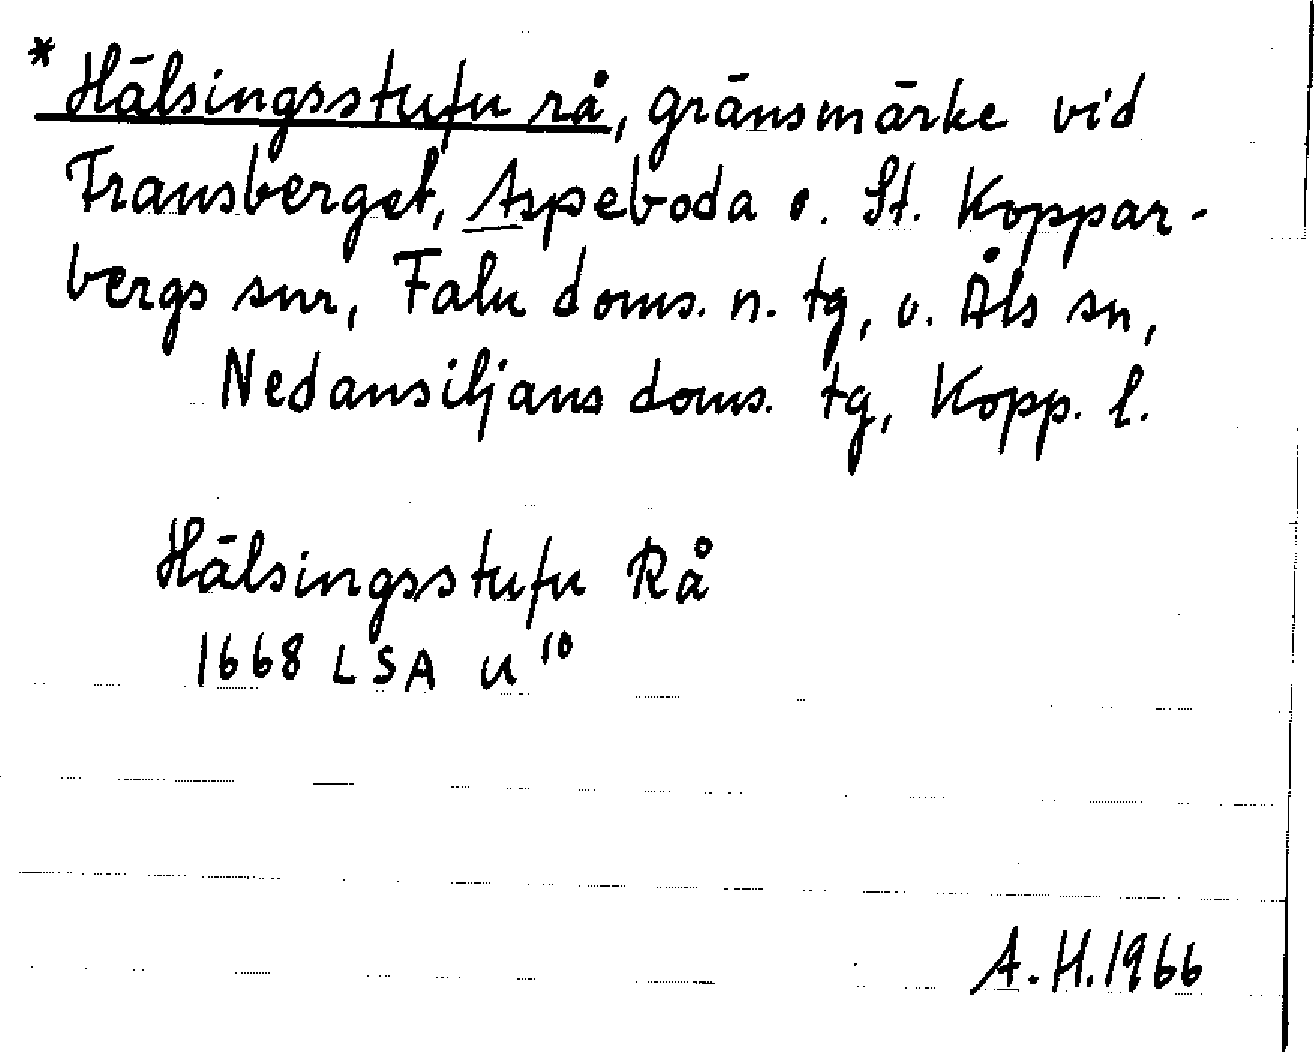 * Hälsingsstufu rå, gränsmärke vid
Transberget, Aspeboda o. St. Koppar-
bergs snr, Falu doms. n. tg, o. Åls sn,
Nedansiljans doms. tg, Kopp. l.
Hälsingsstufu Rå
1668 LSA U 10
A. H. 1966